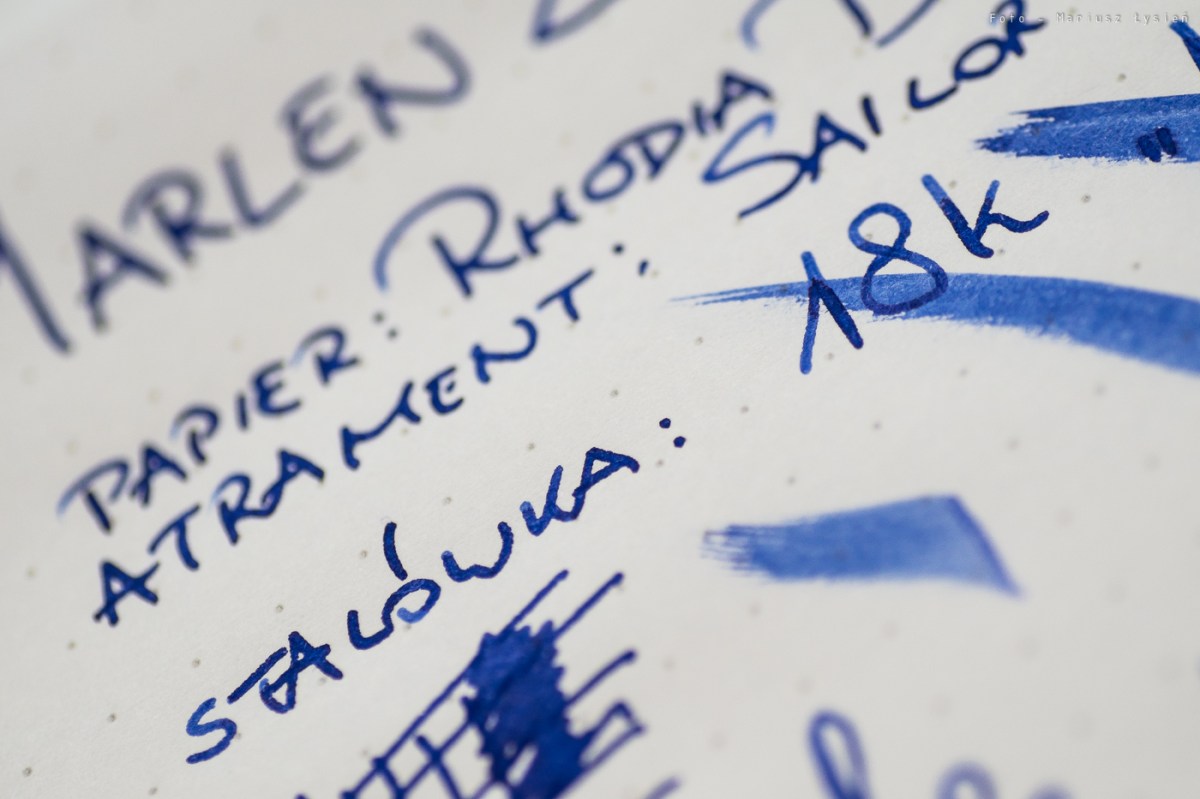 Foto - Mariusz Łysień
MARLEN
PAPIER: RHODIA
ATRAMENT: SAILOR
STALÓWKA: 18K